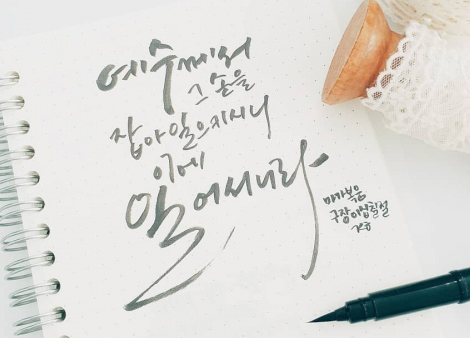 예수께서
그 손을
잡아 일으키시니
이에
일어서니라
마가복음
구장이십칠절